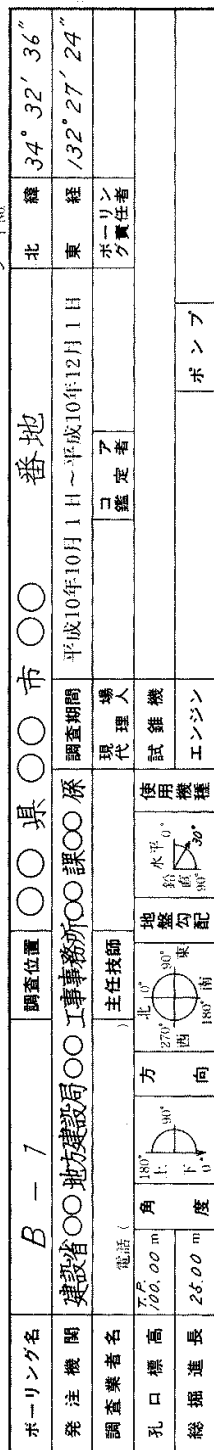 ボーリング名 B-1 調査位置 ○○県○○市○○ 番地 北緯 34° 32′ 36″
発注機関 建設省○○地方建設局○○工事事務所○○課○○係 調査期間 平成10年10月1日～平成10年12月1日 東経 132° 27′ 24″
調査業者名 電話( ) 主任技師 現場代理人 コア鑑定者 ボーリング責任者
孔口標高 T.P. 100.00m 角度 180° 上 90° 下 0° 方向 北 0° 90° 東 南 180° 西 270° 地盤勾配 水平 0° 30° 鉛直 90° 使用機種 試錐機
総掘進長 25.00m エンジン ポンプ